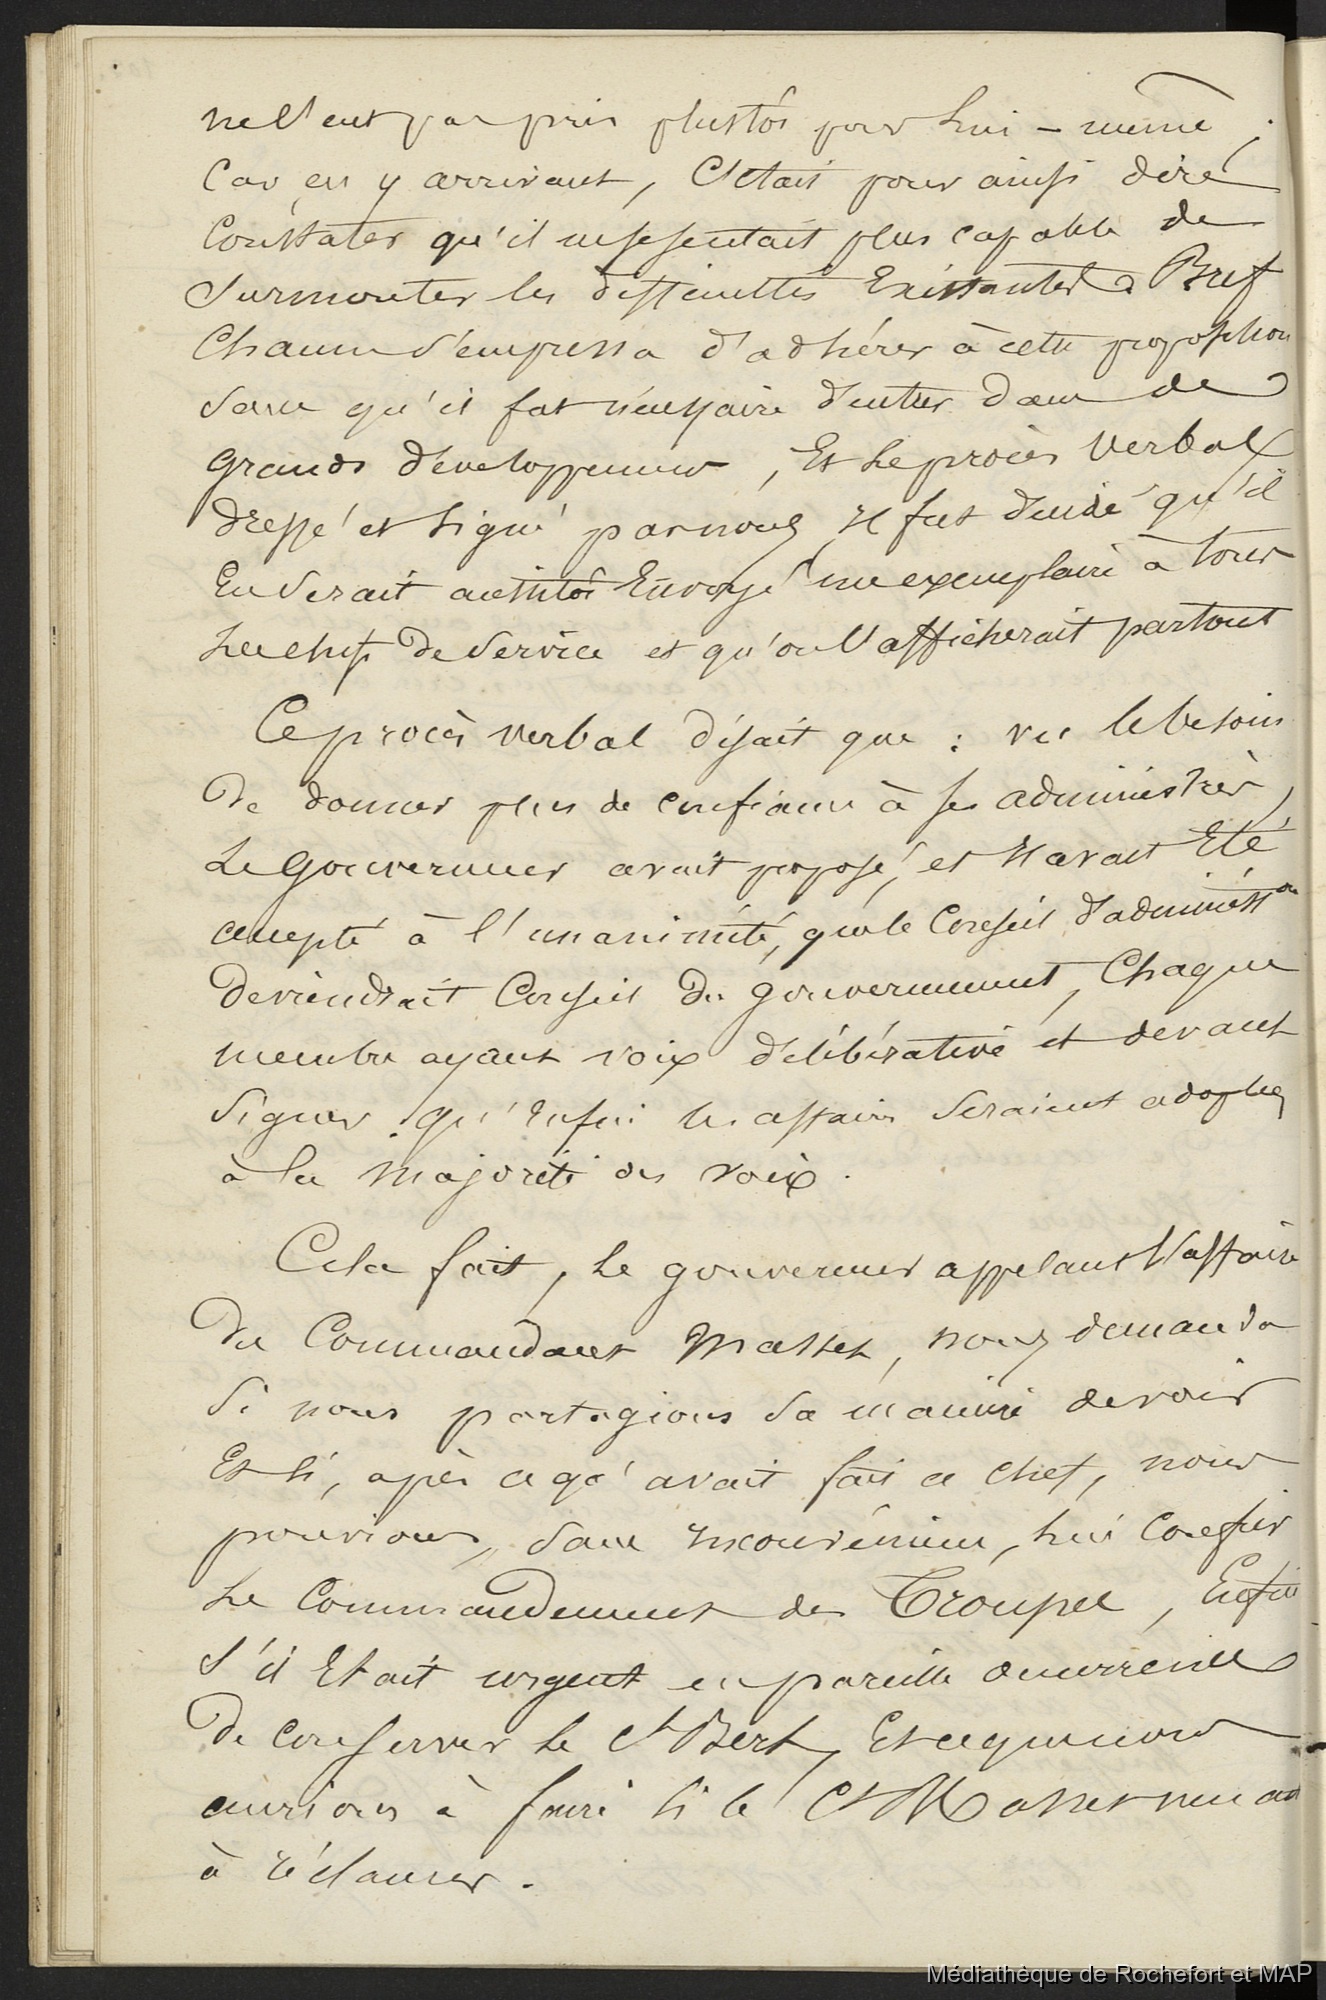 ne l'eut pas pris plustôt pour lui-même ;
Car en y arrivant, C'était pour ainsi dire
Constater qu'il ne se sentait plus capable de
Surmonter les difficultés Existantes. Bref
Chacun s'empressa d'adhérer à cette proposition
Sans qu'il fut nécessaire d'entrer dans de
Grands développemens, Et Le procès Verbal
dressé et signé par nous, Il fut décidé qu'il
En Serait aussitôt Envoyé un exemplaire à tous
Les chefs de Service et qu'on l'afficherait partout
Ce procès verbal disait que : vu le besoin
De donner plus de confiance à ses administrés,
Le Gouverneur avait proposé, et Il avait Eté
accepté à l'unanimité, que le Conseil d'administ.on
deviendrait Conseil du Gouvernement, Chaque
membre ayant voix délibérative et devant
Signer. qu'Enfin les affaires Seraient adoptées
à la Majorité des voix.
Cela fait, Le gouverneur appelant l'affaire
Du Commandant Masset, nous demanda
Si nous partagions Sa manière de voir
Et si, après ce qu'avait fait ce chef, nous
pouvions, Sans Inconvénient, lui Confier
Le Commandement des Troupes, Enfin
S'il Etait urgent en pareille occurrence
De Conserver le Ct Bert, Et ce que nous
aurions à faire si le Ct Masset venait
à réclamer.
Médiathèque de Rochefort et MAP